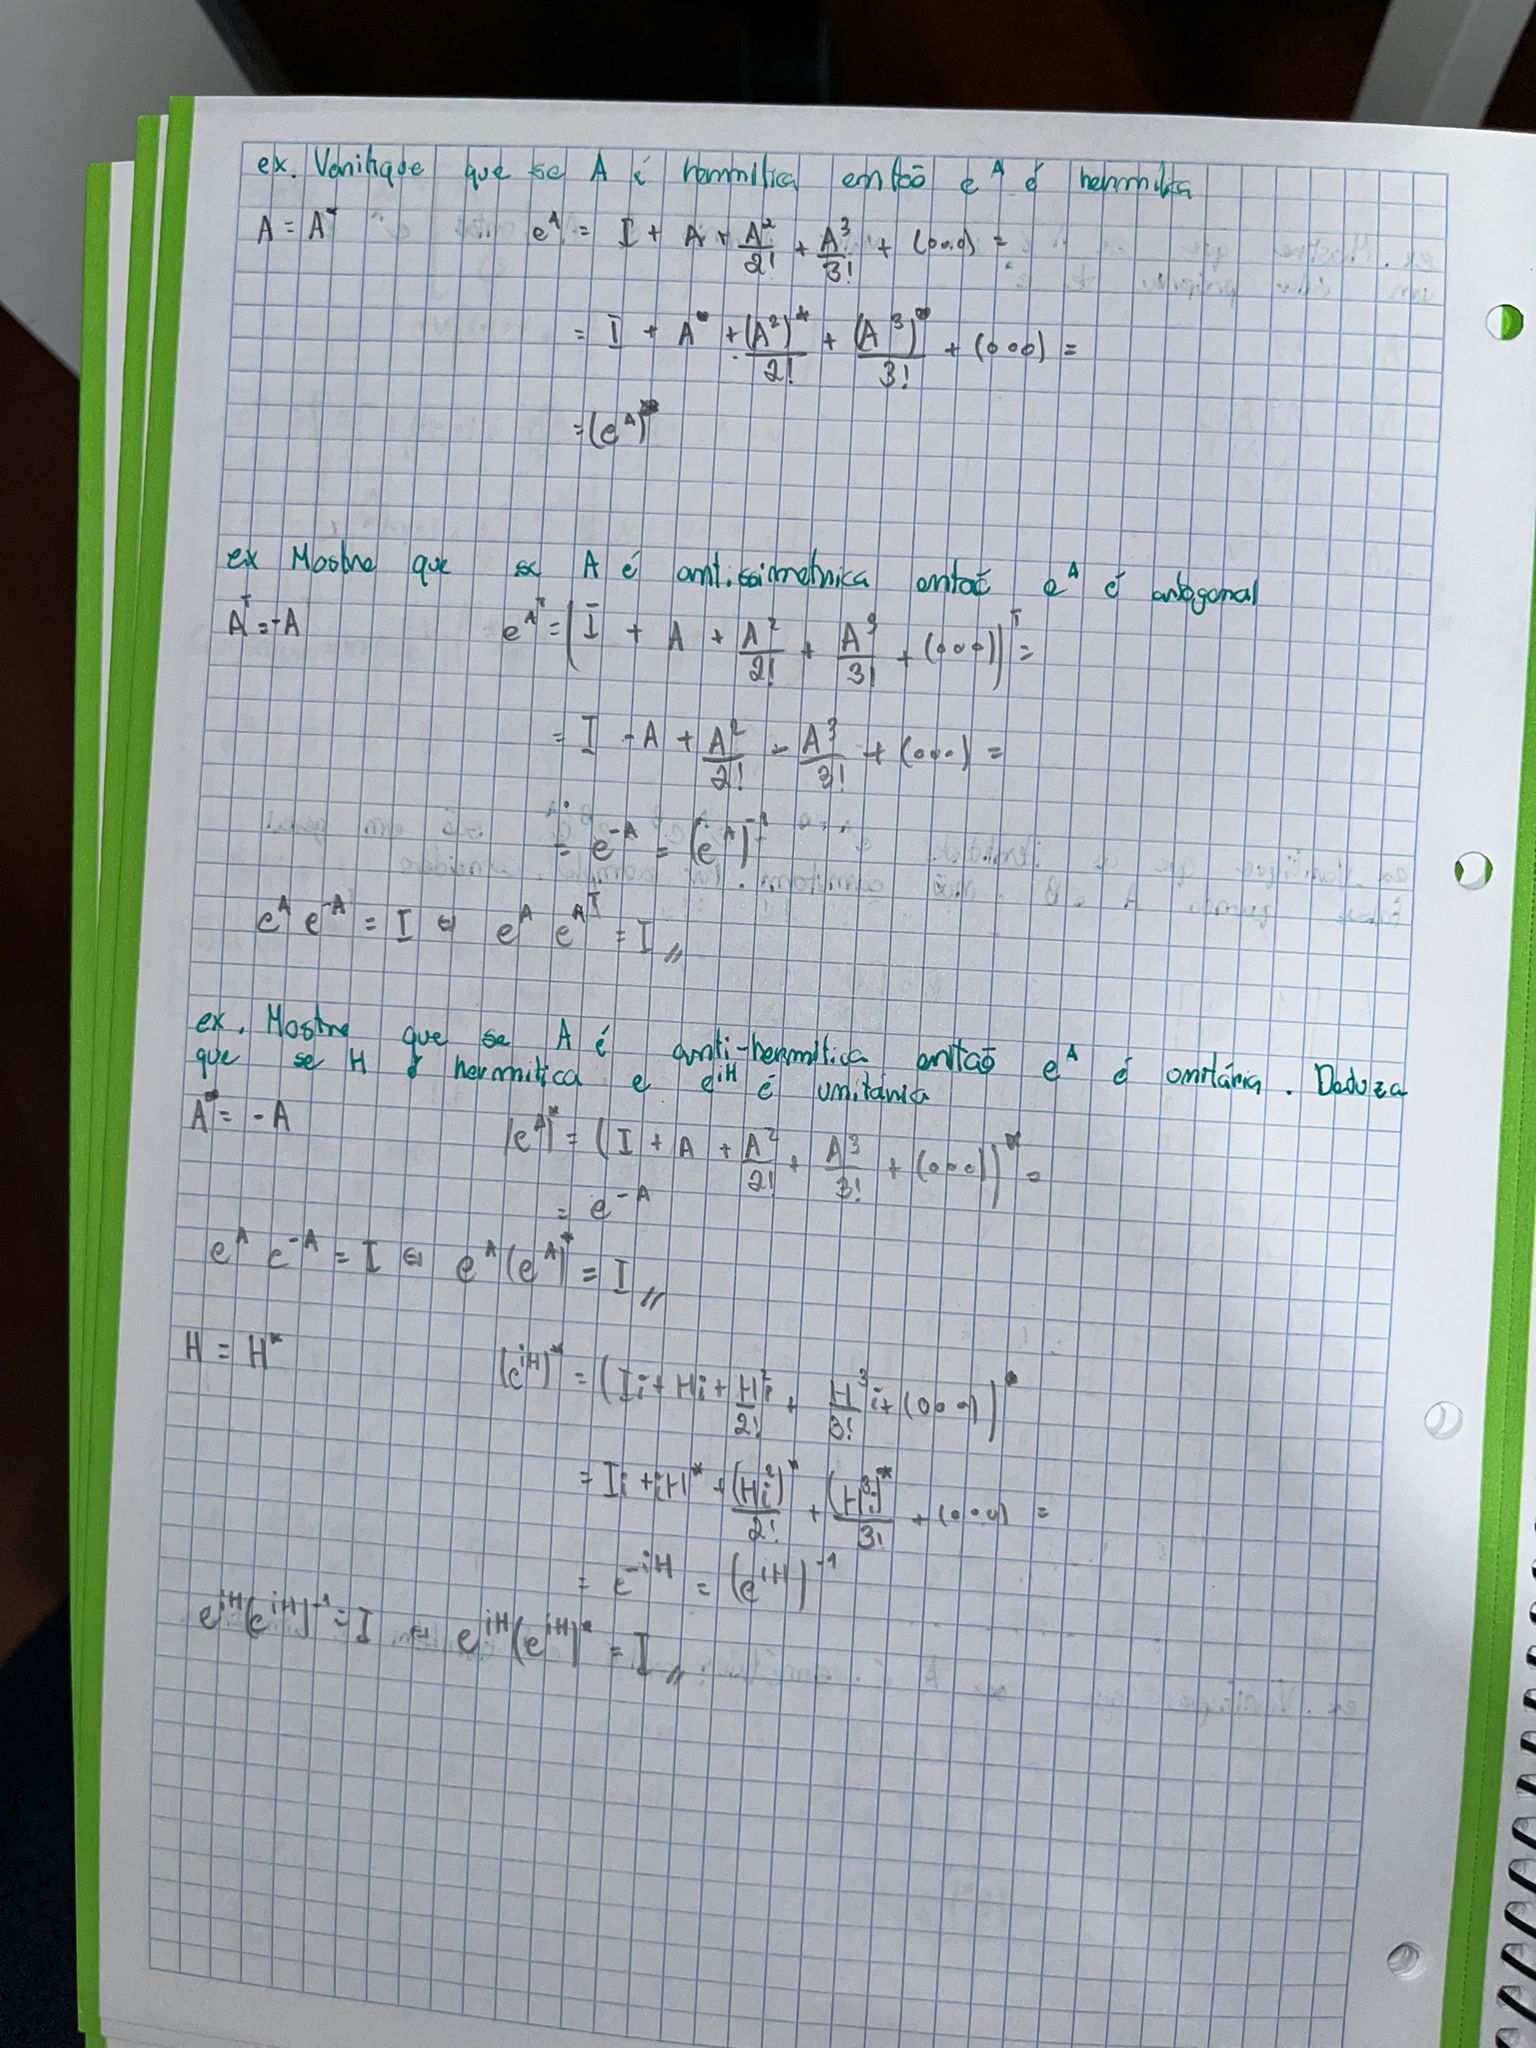 ex. Verifique que se A é hermitica então e^A é hermitica
A = A^*    e^A = I + A + A^2/2! + A^3/3! + (ooo) =
= I + A^* + (A^2)^*/2! + (A^3)^*/3! + (ooo) =
= (e^A)^*
ex Mostre que se A é antissimetrica então e^A é ortogonal
A^T = -A    e^A^T = (I + A + A^2/2! + A^3/3! + (ooo))^T =
= I - A + A^2/2! - A^3/3! + (ooo) =
= e^-A = (e^A)^-1
e^A e^-A = I ⇔ e^A e^A^T = I //
ex. Mostre que se A é anti-hermitica então e^A é unitária. Deduza
que se H é hermitica e e^iH é unitária
A^* = -A    (e^A)^* = (I + A + A^2/2! + A^3/3! + (ooo))^* =
= e^-A
e^A e^-A = I ⇔ e^A (e^A)^* = I //
H = H^*    (e^iH)^* = (Ii + Hi + H^2 i/2! + H^3/3! i + (ooo))^*
= Ii + iH^* + (H^2 i)^*/2! + (H^3 i)^*/3! + (ooo) =
= e^-iH = (e^iH)^-1
e^iH (e^iH)^-1 = I ⇔ e^iH (e^iH)^* = I //